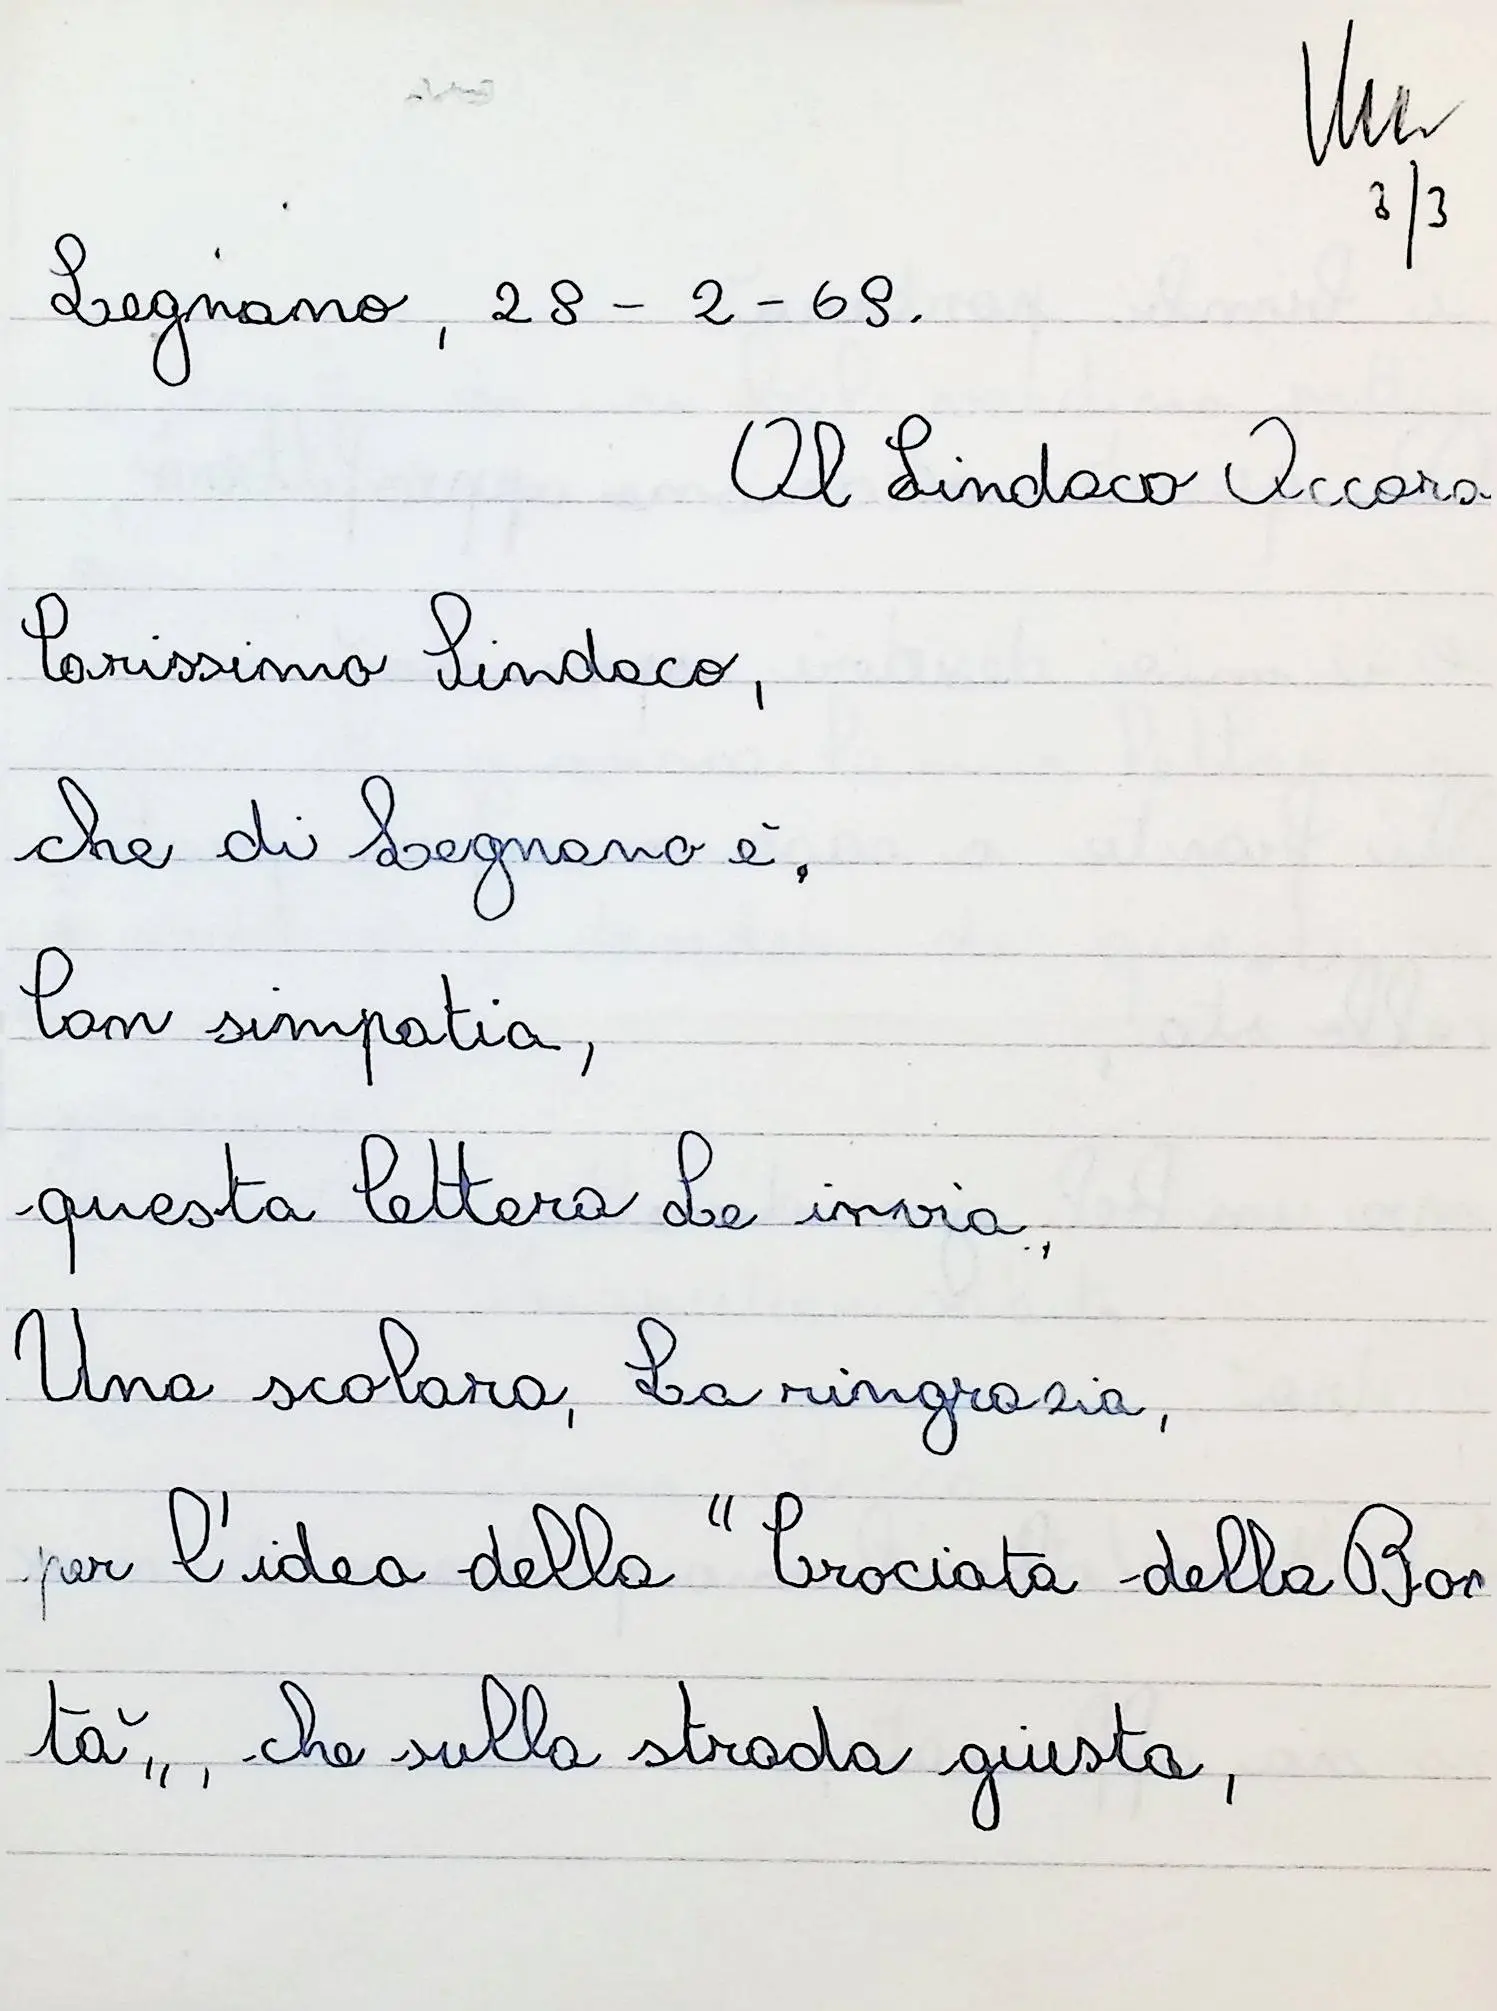 3/3
Legnano, 28 - 2 - 68.
Al Sindaco
Carissimo Sindaco,
che di Legnano è,
Con simpatia,
questa lettera Le invia,
Una scolara, La ringrazia,
per l'idea della "Crociata della Bon
tà", che sulla strada giusta,